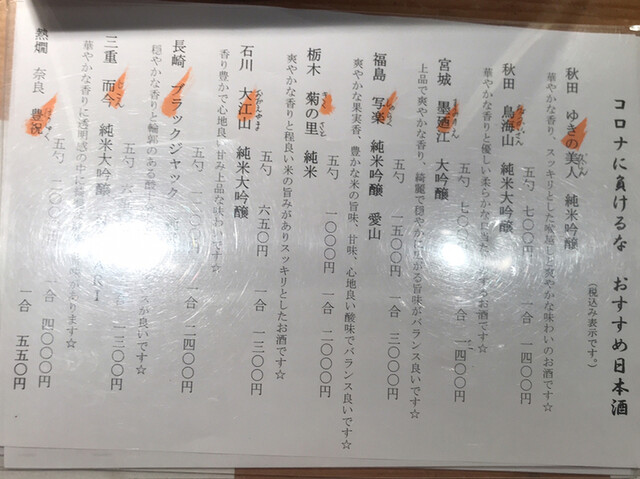 コロナに負けるな おすすめ日本酒
（税込み表示です。）
秋田 ゆきの美人 純米吟醸
爽やかな香り、スッキリとした喉越しと爽やかな味わいのお酒です☆
五勺 七〇〇円 一合 一四〇〇円
秋田 鳥海山 純米大吟醸
華やかな香りと優しい柔らかな口当たりがするお酒です☆
五勺 七〇〇円 一合 一四〇〇円
宮城 墨廼江 大吟醸
上品で爽やかな香り、綺麗で穏やかに広がる旨味がバランス良いです☆
五勺 一五〇〇円 一合 三〇〇〇円
福島 写楽 純米吟醸 愛山
爽やかな果実香、豊かな米の旨味、甘味、心地良い酸味でバランス良いです☆
五勺 一〇〇〇円 一合 二〇〇〇円
栃木 菊の里 純米
爽やかな香りと程良い米の旨みがありスッキリとしたお酒です☆
五勺 六五〇円 一合 一三〇〇円
石川 大江山 純米大吟醸
香り豊かで心地良い甘み上品な味わいです☆
五勺 一合 二四〇〇円
長崎 ブラックジャック
穏やかな香りと輪郭のある酸 スが良いです☆
五勺 一三〇〇円
三重 而今 純米大吟醸
華やかな香りに透明感の中に があります☆
五勺 二〇〇〇円 一合 四〇〇〇円
熱燗 奈良 豊祝 一合 五五〇円